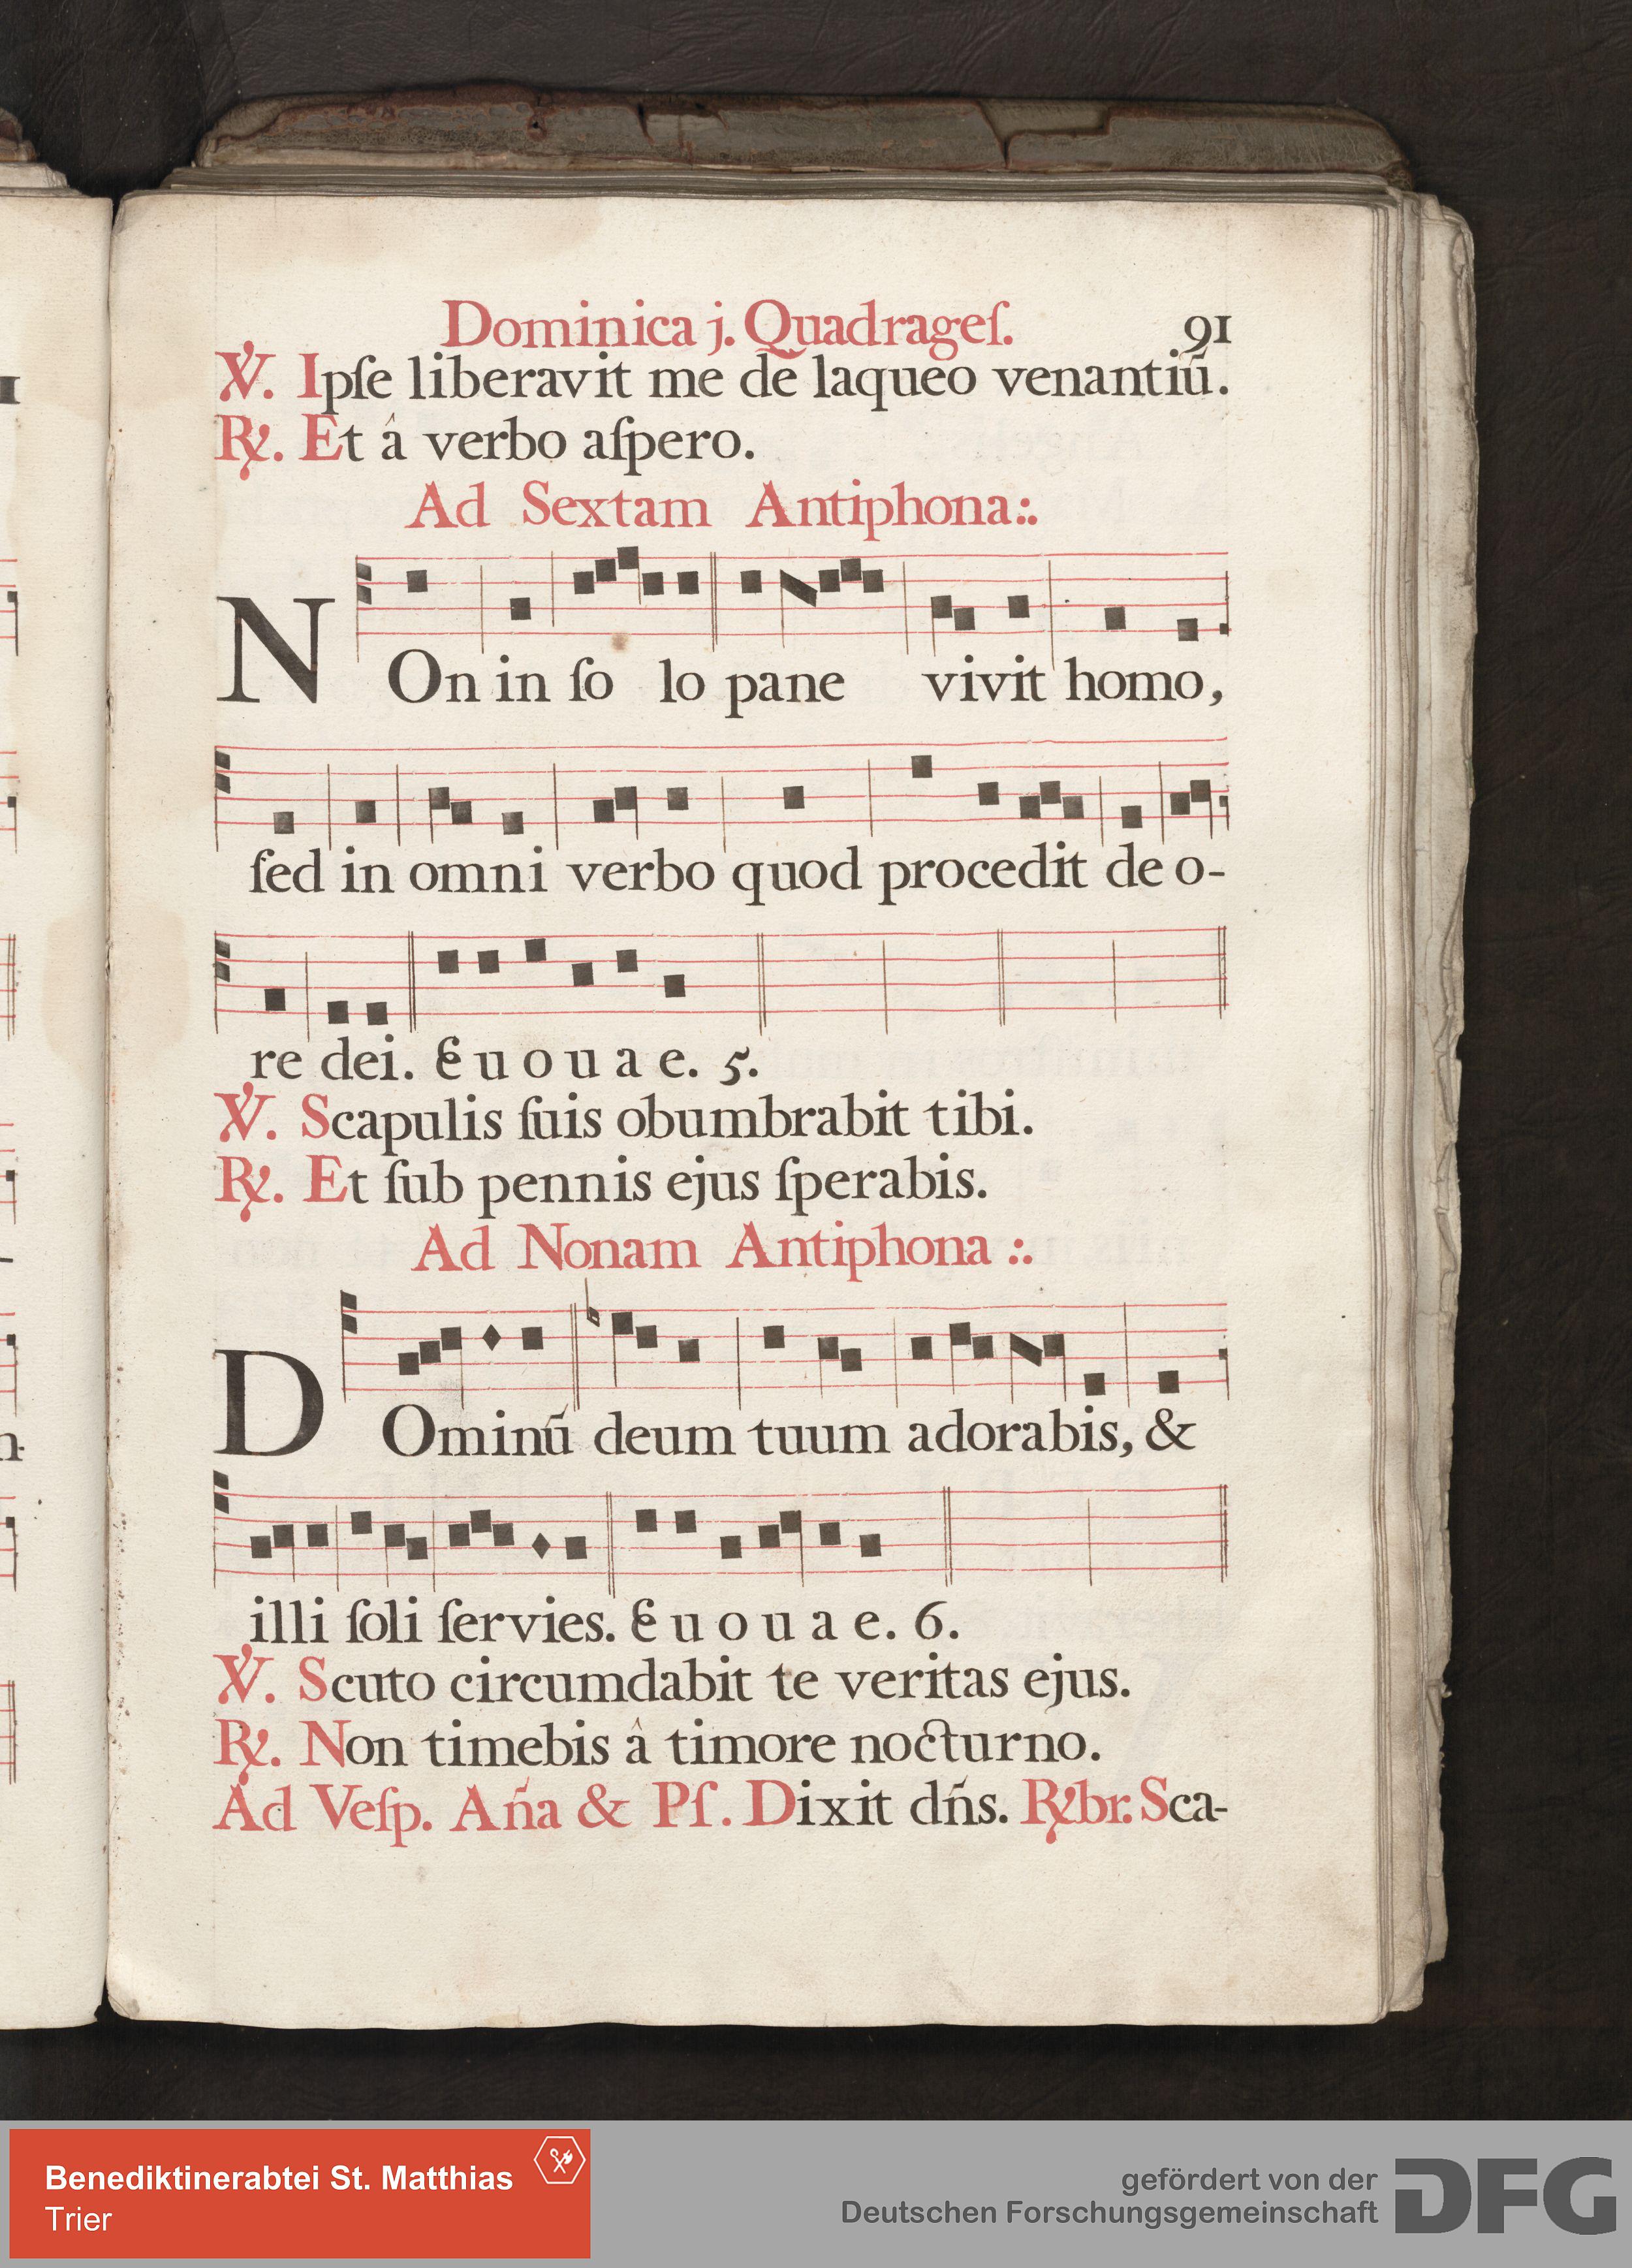 Dominica j. Quadrageſ. 91
℣. Ipſe liberavit me de laqueo venantiū.
℟. Et â verbo aſpero.
Ad Sextam Antiphona:.
NOn in ſo lo pane vivit homo,
ſed in omni verbo quod procedit de o-
re dei. Euouae. 5.
℣. Scapulis ſuis obumbrabit tibi.
℟. Et ſub pennis ejus ſperabis.
Ad Nonam Antiphona :.
DOminū deum tuum adorabis, &
illi ſoli ſervies. Euouae. 6.
℣. Scuto circumdabit te veritas ejus.
℟. Non timebis â timore nocturno.
Ad Veſp. Aña & Pſ. Dixit dñs. ℟br. Sca-
Benediktinerabtei St. Matthias
Trier
gefördert von der
Deutschen Forschungsgemeinschaft
DFG